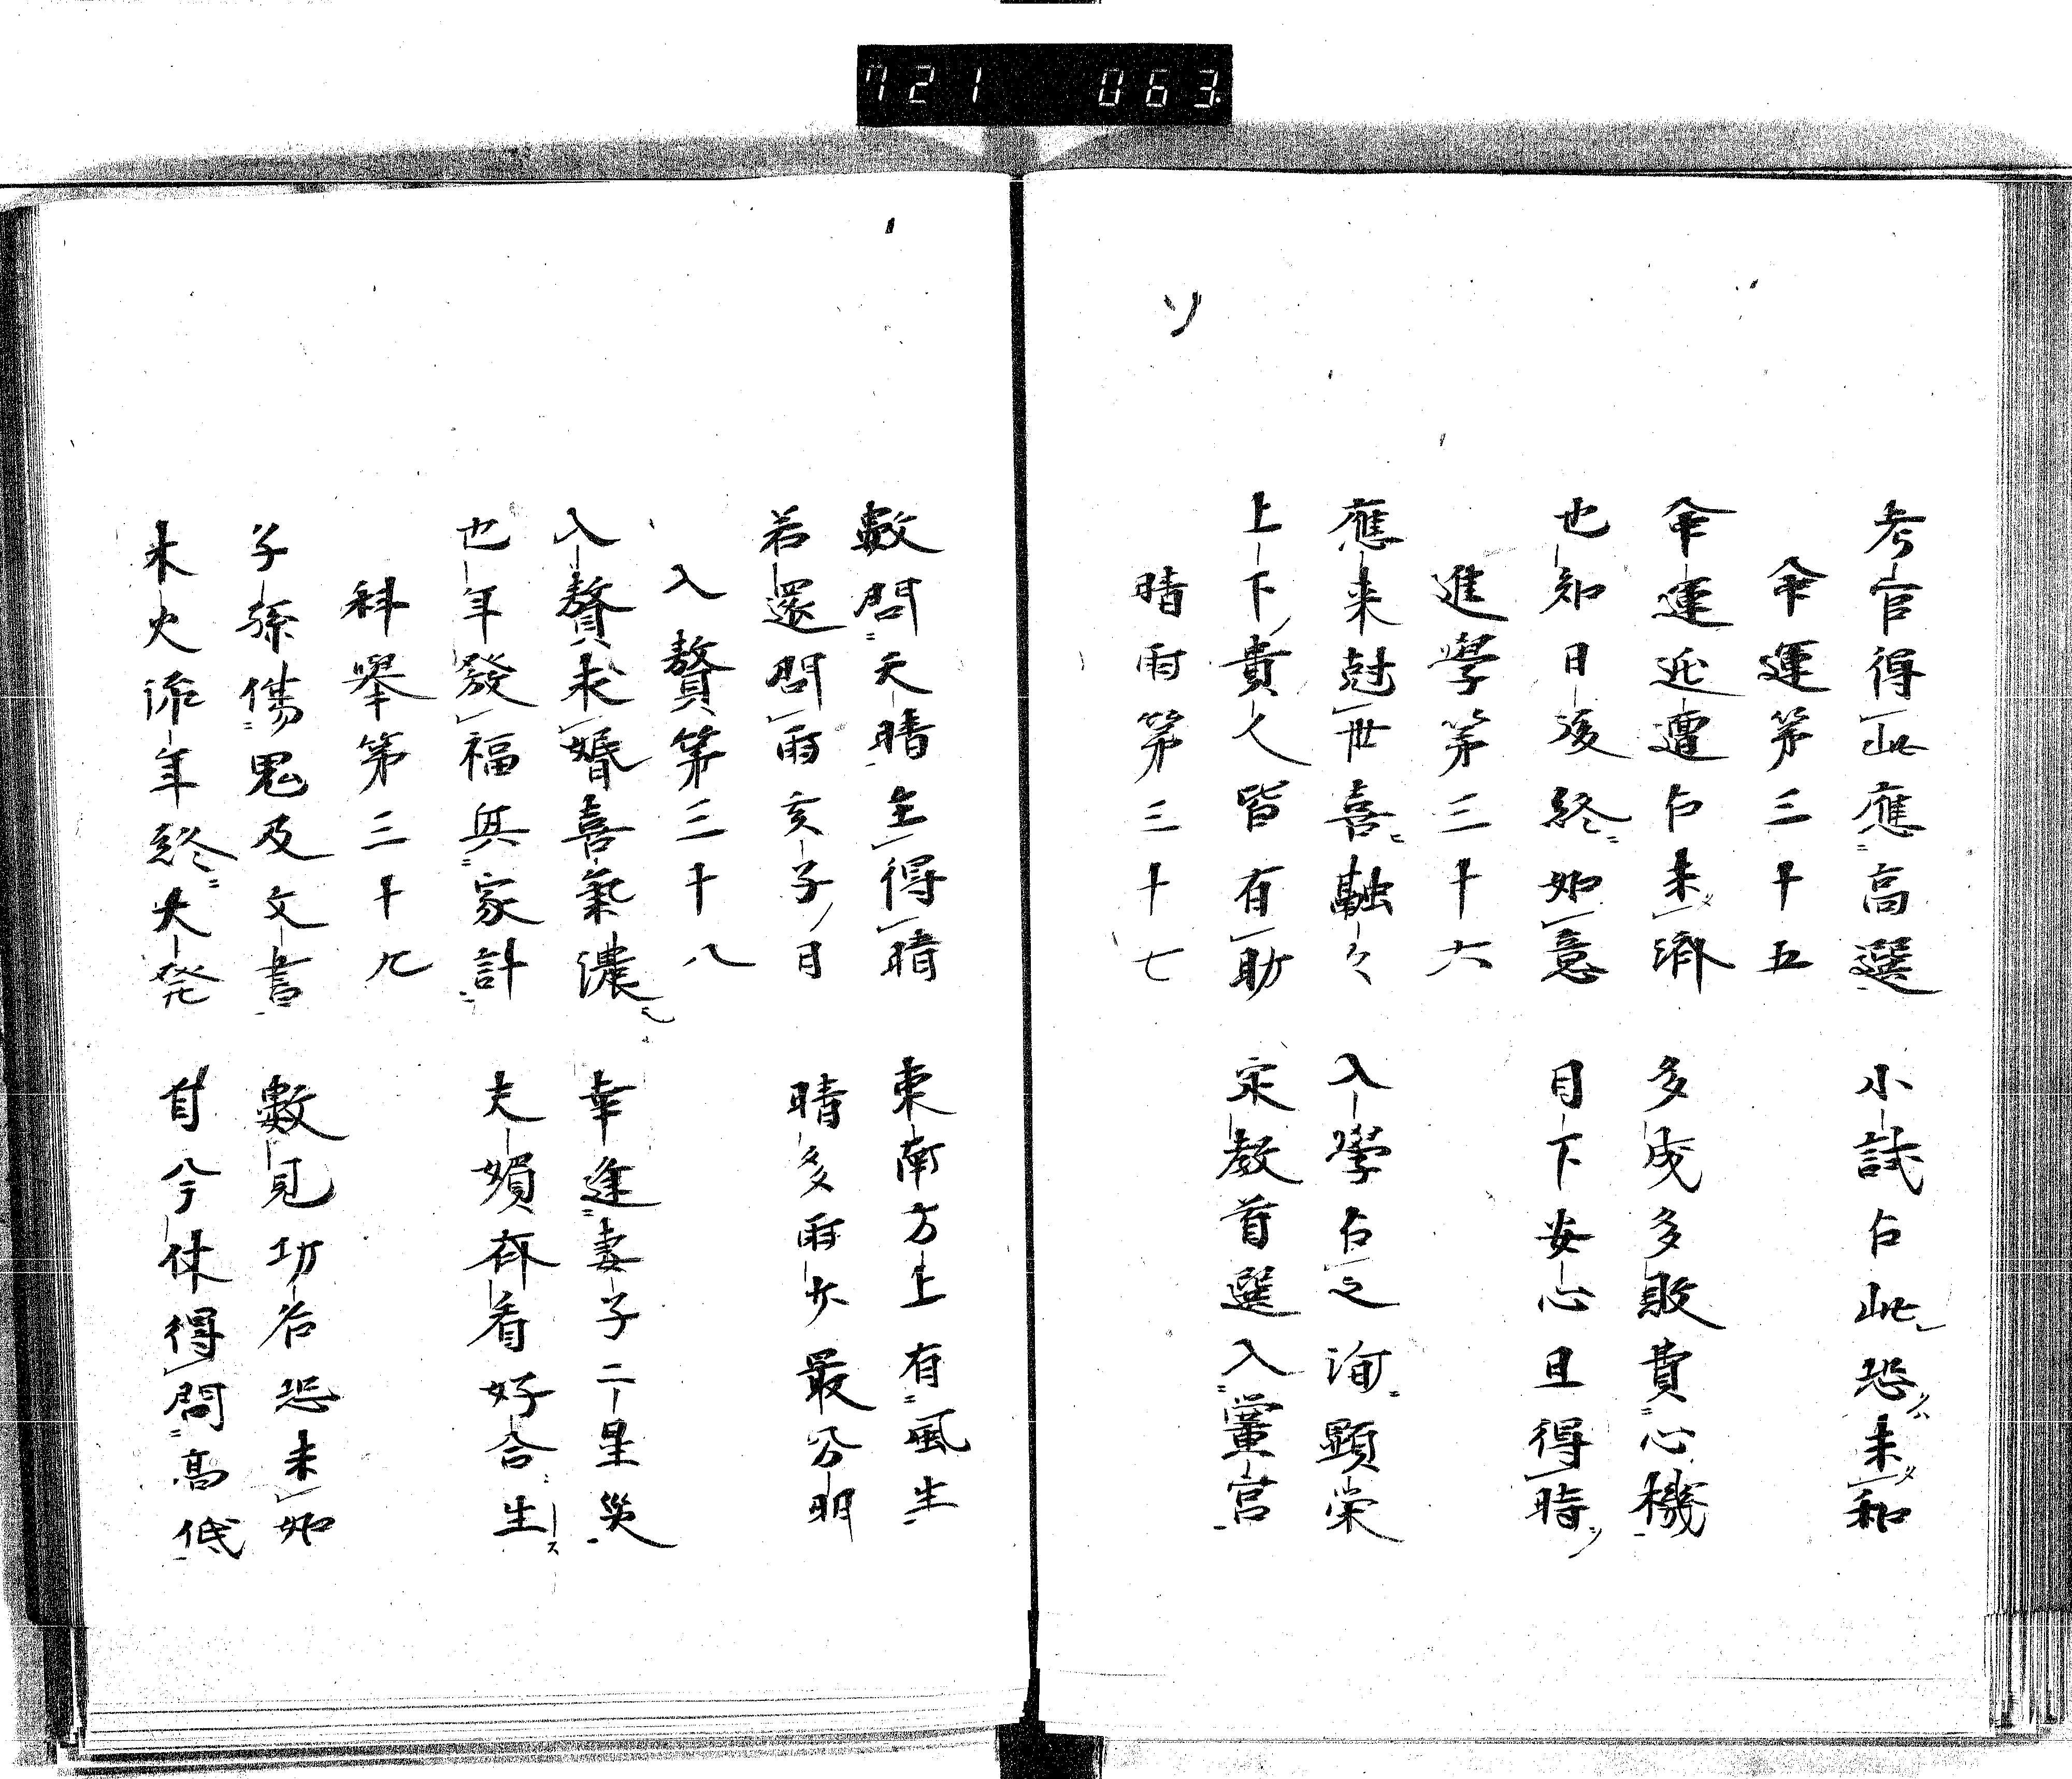 721 063
考官得此應高選 小試占此恐未和
命運第三十五
命運迍邅占未済 多成多敗費心機
也知日後終如意 目下安心且得時
進學第三十六
應来尅世喜融々 入學占之洵顕栄
上下貴人皆有助 宗教首選入黌宮
晴雨第三十七
數問天晴主得晴 東南方上有風生
若還問雨亥子日 晴多雨少最分明
入贅第三十八
入贅求婚喜氣濃 幸逢妻子二星災
也年發福興家計 夫婦齊看好合生
科舉第三十九
子孫傷鬼及文書 數見功名恐未如
木火流年終大発 自今休得問高低